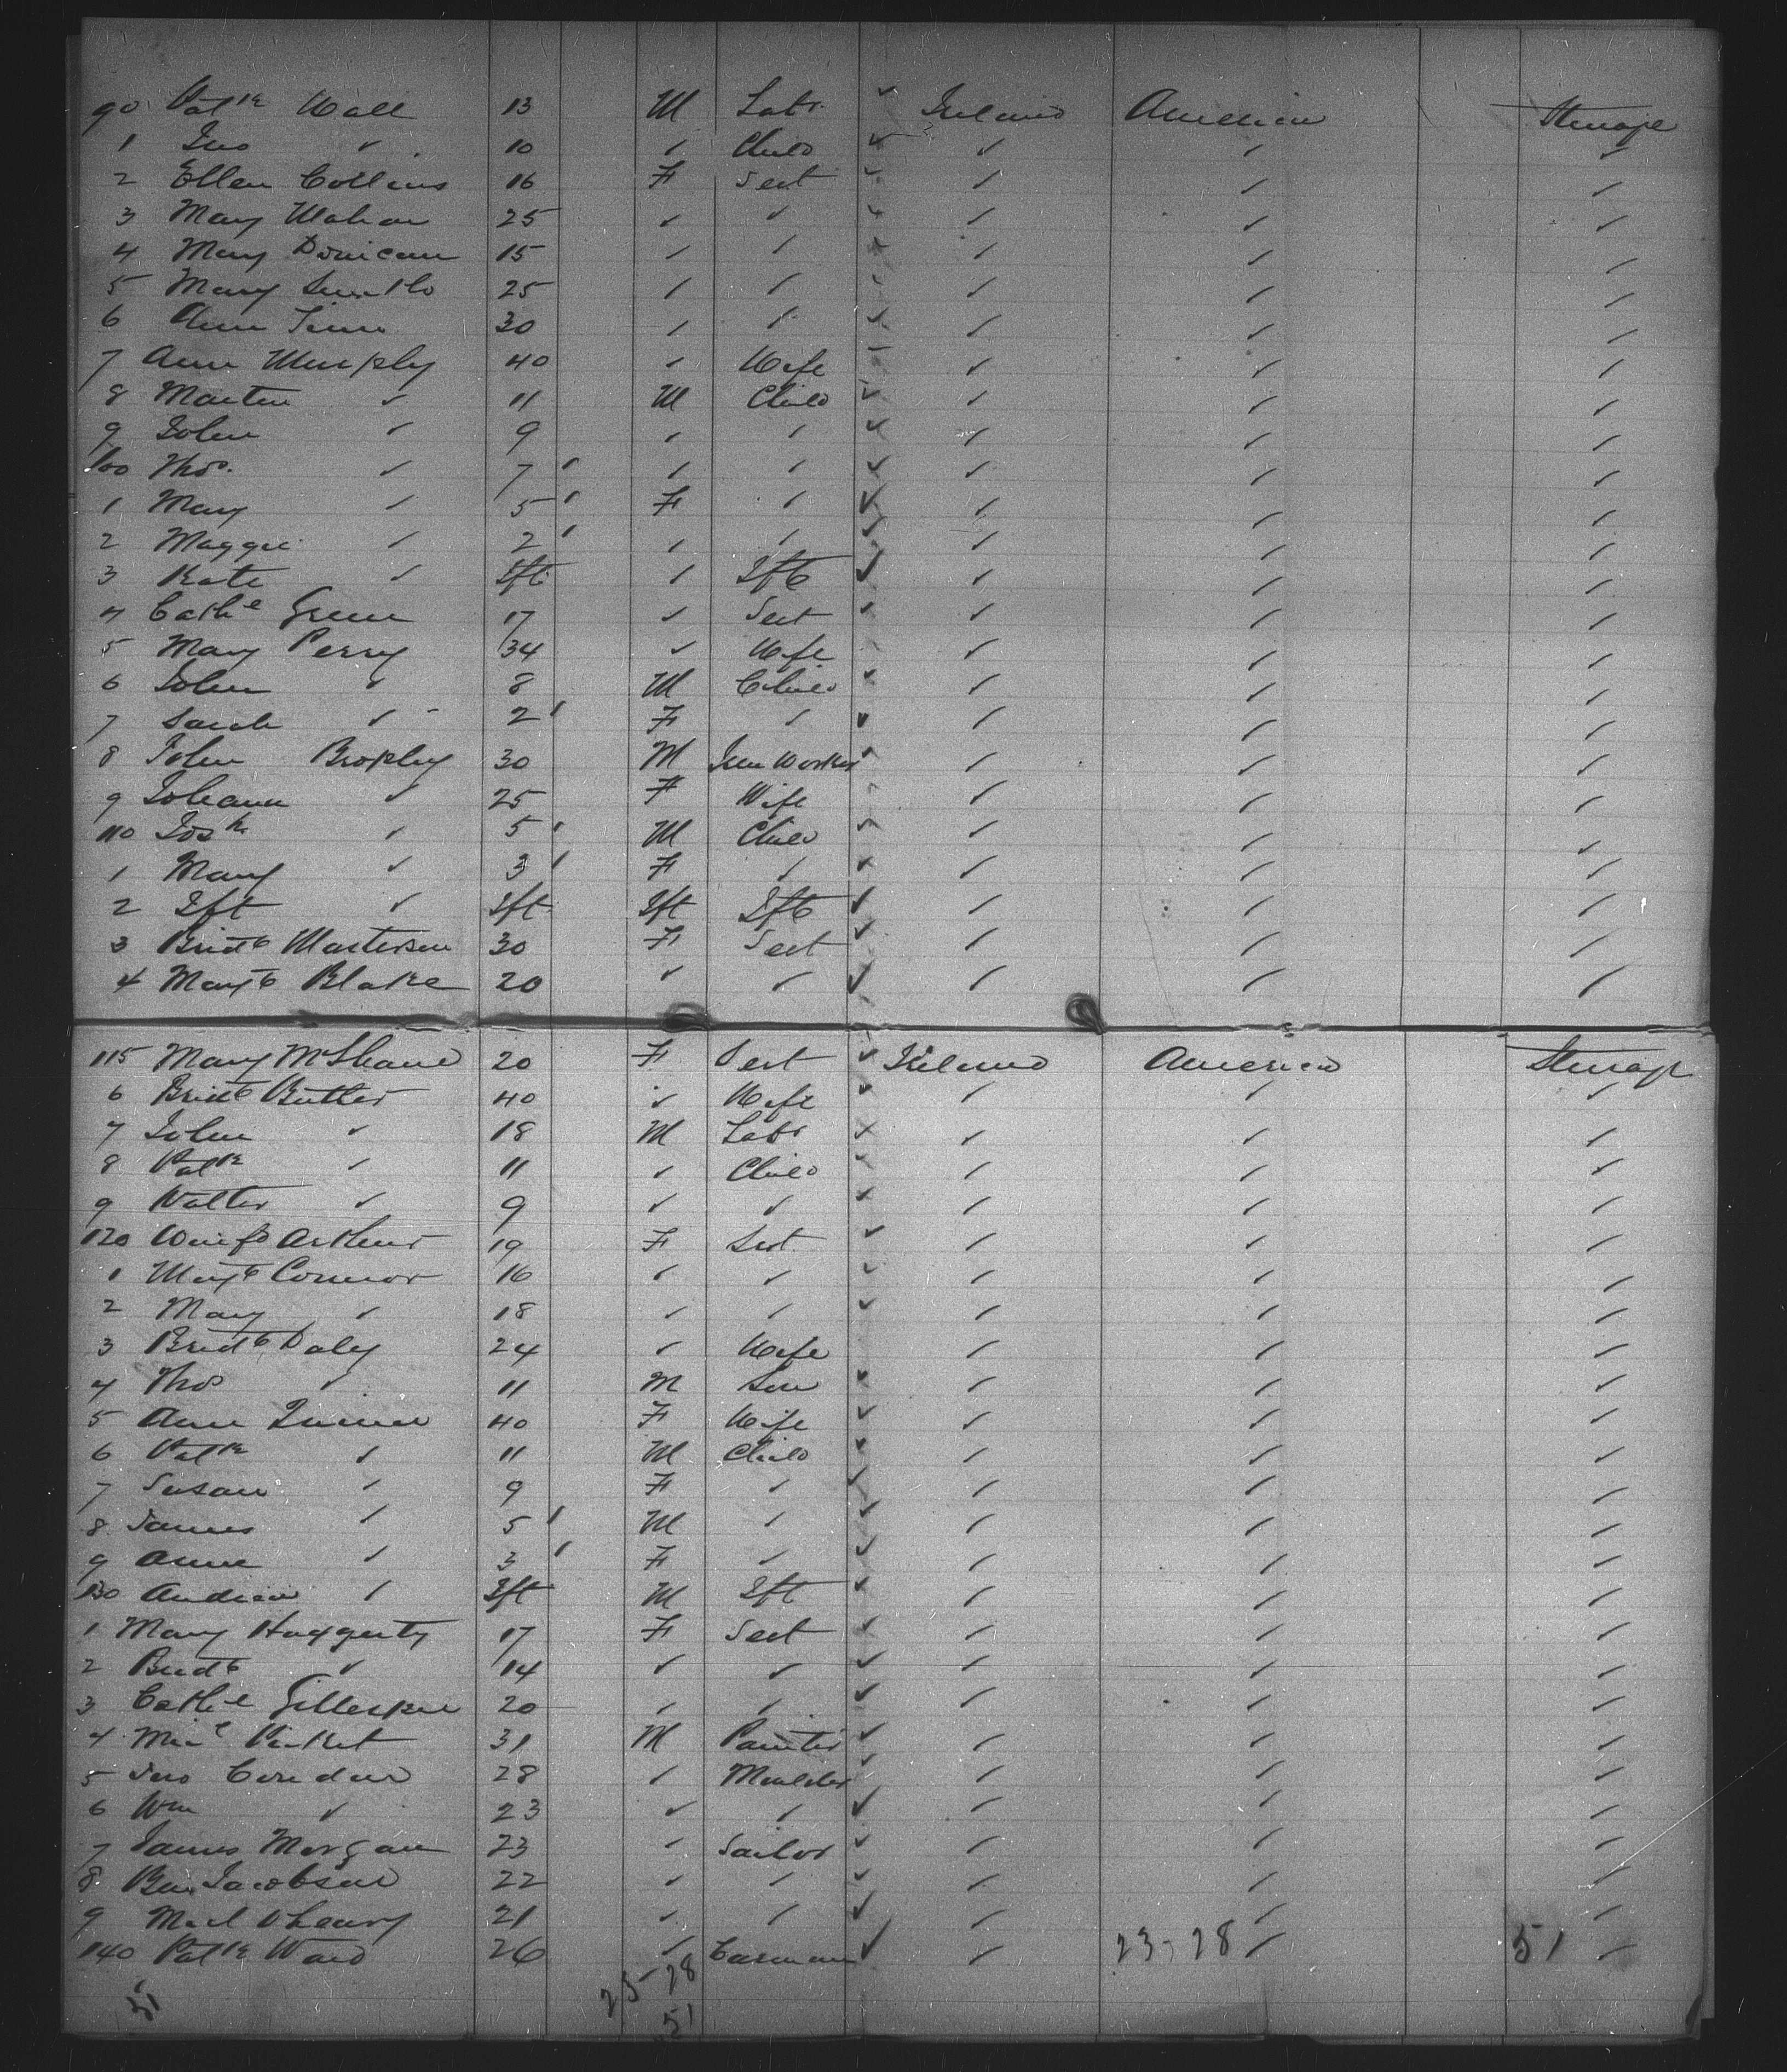 90 Patk Wall 13 M Labr ✓ Ireland America Steerage
1 Jno ✓ 10 ✓ Child ✓ ✓ ✓ ✓
2 Ellen Collins 16 F Sert ✓ ✓ ✓ ✓
3 Mary Mahon 25 ✓ ✓ ✓ ✓ ✓ ✓
4 Mary Donican 15 ✓ ✓ ✓ ✓ ✓
5 Mary 25 ✓ ✓ ✓ ✓ ✓
6 Ann 30 ✓ ✓ ✓ ✓ ✓ ✓
7 Ann Murphy 40 ✓ Wife ✓ ✓ ✓
8 Martin ✓ 11 M Child ✓ ✓ ✓ ✓
9 John ✓ 9 ✓ ✓ ✓ ✓ ✓ ✓
100 Thos. ✓ 7 ✓ ✓ ✓ ✓ ✓ ✓ ✓
1 Mary ✓ 5 ✓ F ✓ ✓ ✓ ✓ ✓
2 Maggie ✓ 2 ✓ ✓ ✓ ✓ ✓ ✓ ✓
3 Kate ✓ Ift ✓ Ift ✓ ✓ ✓ ✓
4 Cathe Green 17 ✓ Sert ✓ ✓ ✓ ✓
5 Mary Perry 34 ✓ Wife ✓ ✓ ✓
6 John ✓ 8 M Child ✓ ✓ ✓ ✓
7 Sarah ✓ 2 ✓ F ✓ ✓ ✓ ✓ ✓
8 John Brophy 30 M Iron Worker ✓ ✓ ✓ ✓
9 Johann ✓ 25 F Wife ✓ ✓ ✓ ✓
110 Josh ✓ 5 ✓ M Child ✓ ✓ ✓ ✓
1 Mary ✓ 3 ✓ F ✓ ✓ ✓ ✓ ✓
2 Ift ✓ Ift Ift Ift ✓ ✓ ✓ ✓
3 Bridt Masterson 30 F Sert ✓ ✓ ✓ ✓
4 Margt Blake 20 ✓ ✓ ✓ ✓ ✓ ✓
115 Mary McShane 20 F Sert ✓ Ireland America Steerage
6 Bridt Butler 40 ✓ Wife ✓ ✓ ✓ ✓
7 John ✓ 18 M Labr x ✓ ✓ ✓
8 Patk ✓ 11 ✓ Child ✓ ✓ ✓ ✓
9 Walter ✓ 9 ✓ ✓ ✓ ✓ ✓ ✓
120 Winifd Arthur 19 F Sert ✓ ✓ ✓ ✓
1 Margt Connor 16 ✓ ✓ ✓ ✓ ✓ ✓
2 Mary ✓ 18 ✓ ✓ ✓ ✓ ✓ ✓
3 Bridt Daly 24 ✓ Wife ✓ ✓ ✓
4 Thos ✓ 11 M Son ✓ ✓ ✓ ✓
5 Ann Quinn 40 F Wife ✓ ✓ ✓ ✓
6 Patk ✓ 11 M Child ✓ ✓ ✓ ✓
7 Susan ✓ 9 F ✓ ✓ ✓ ✓ ✓
8 James ✓ 5 ✓ M ✓ ✓ ✓ ✓ ✓
9 Anne ✓ 3 ✓ F ✓ ✓ ✓ ✓ ✓
130 Andrew ✓ Ift M Ift ✓ ✓ ✓ ✓
1 Mary Haggerty 17 F Sert ✓ ✓ ✓ ✓
2 Bridt ✓ 14 ✓ ✓ ✓ ✓ ✓ ✓
3 Cathe Gillespie 20 ✓ ✓ ✓ ✓ ✓ ✓
4 Micl 31 M Painter ✓ ✓ ✓ ✓
5 Jno Condon 28 ✓ Moulder ✓ ✓ ✓ ✓
6 Wm ✓ 23 ✓ ✓ ✓ ✓ ✓ ✓
7 James Morgan 23 ✓ Sailor ✓ ✓ ✓ ✓
8 Ben Jacobson 22 ✓ ✓ ✓ ✓ ✓ ✓
9 Micl O'Leary 21 ✓ ✓ ✓ ✓ ✓ ✓
140 Patk Ward 26 ✓ Carman ✓ ✓ 23-28 ✓ 51 ✓
51 28
51